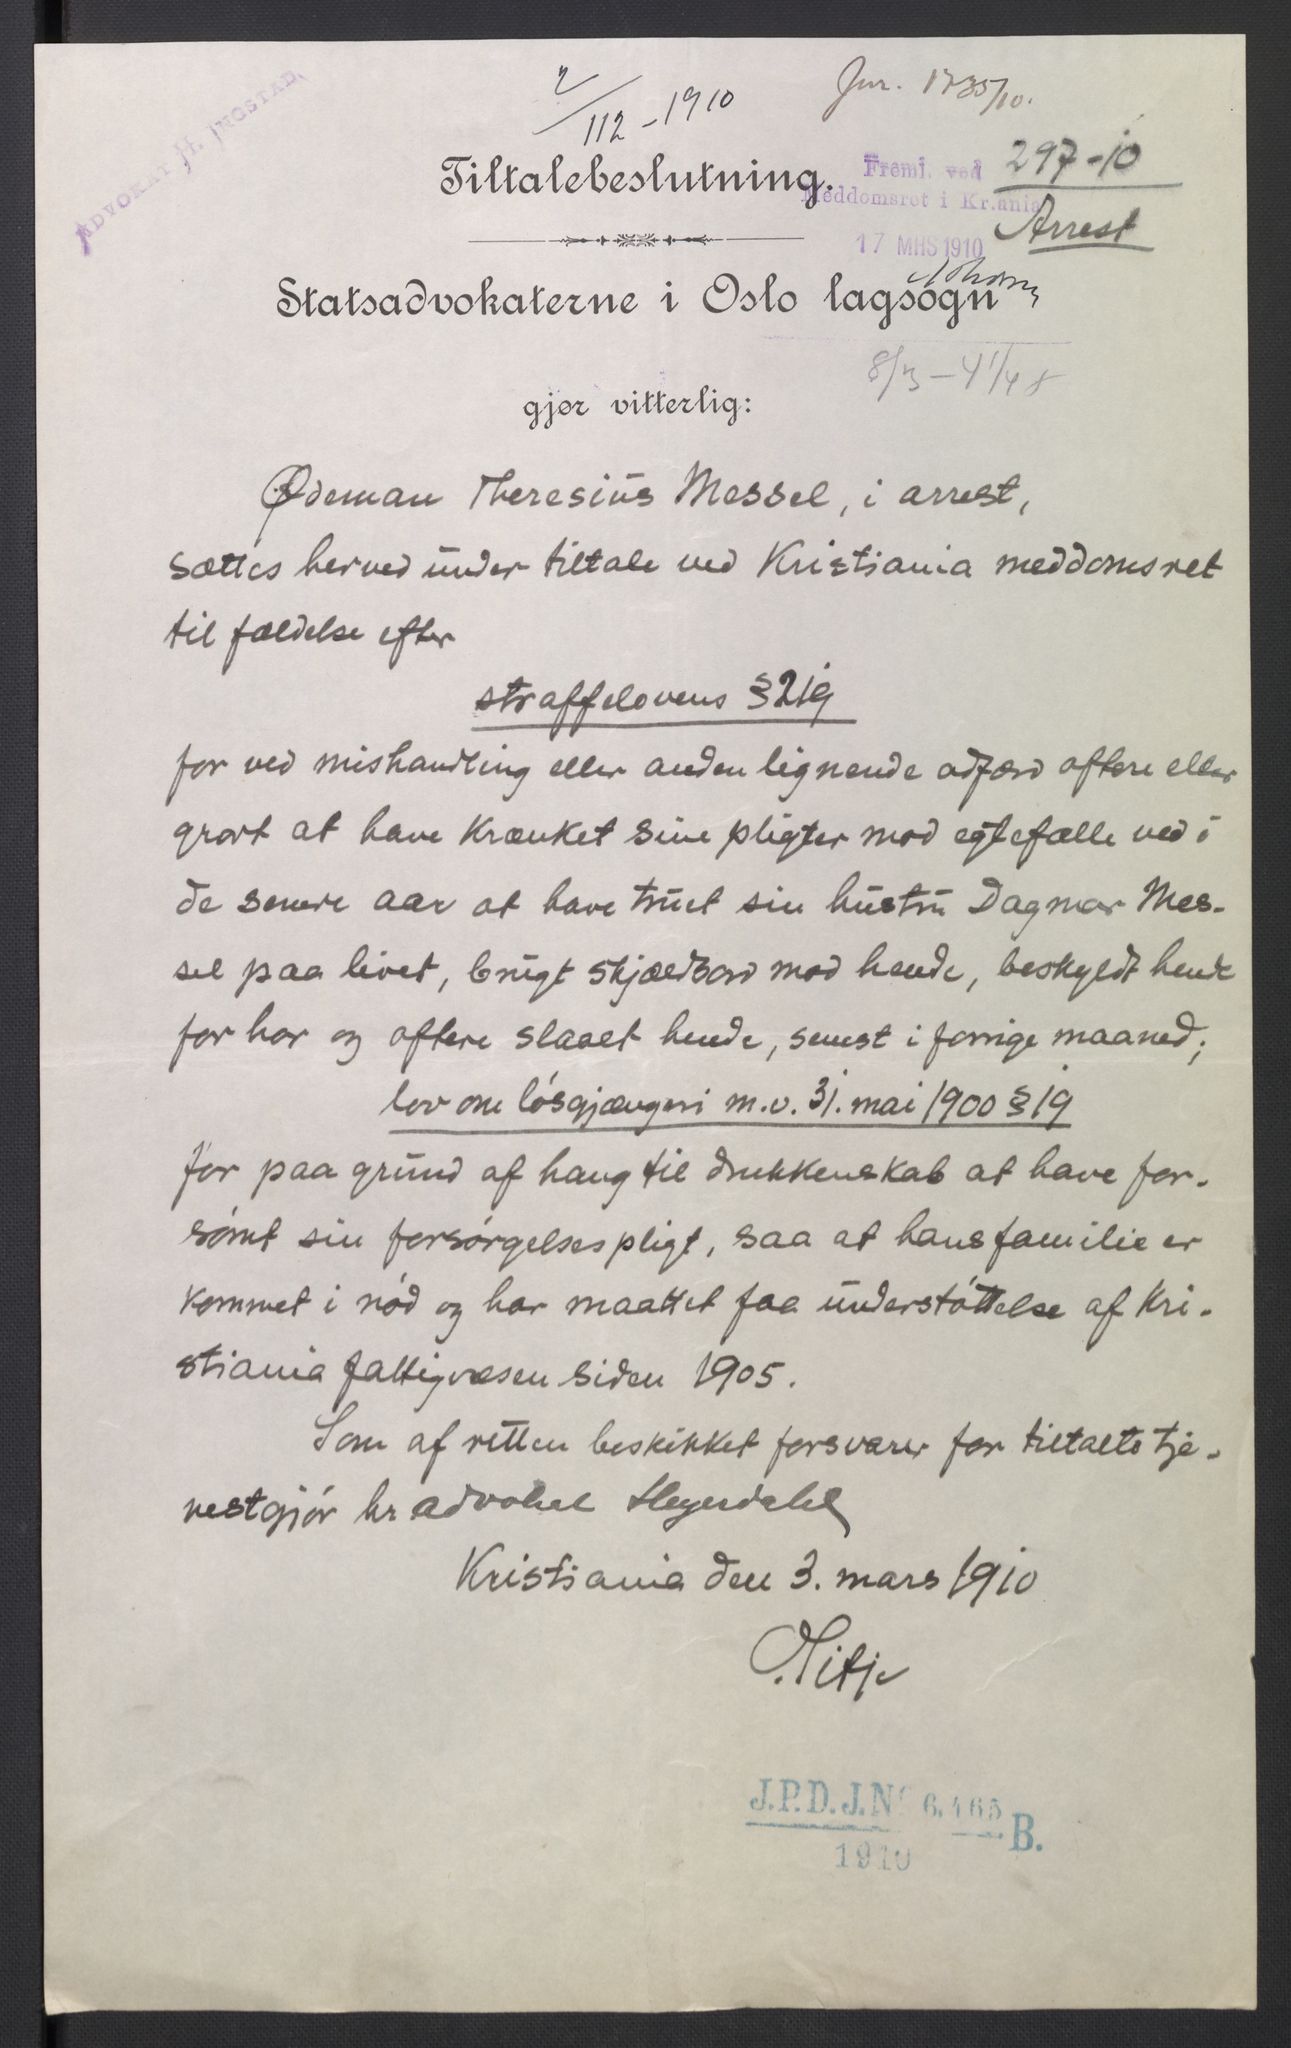 ADVOKAT H. INGSTAD.
2/112-1910
Jnr. 1735/10.
Tiltalebeslutning.
Freml. ved 297-10
Meddomsret i Kr.ania
Arrest
17 MRS 1910
Statsadvokaterne i Oslo lagsogn
8/3 - 41/48
gjør vitterlig:
Ødeman Theresius Messel, i arrest,
sættes herved under tiltale ved Kristiania meddomsret
til fældelse efter
straffelovens § 219
for ved mishandling eller anden lignende adfærd oftere eller
grovt at have krænket sine pligter mod egtefælle ved i
de senere aar at have truet sin hustru Dagmar Mes-
sel paa livet, brugt skjældsord mod hende, beskyldt hende
for hor og oftere slaaet hende, senest i forrige maaned;
lov om løsgjængeri m.v. 31. mai 1900 § 19
for paa grund af hang til drukkenskab at have for-
sømt sin forsørgelsespligt, saa at hans familie er
kommet i nød og har maattet faa understøttelse af Kri-
stiania fattigvæsen siden 1905.
Som af retten beskikket forsvarer for tiltalte tje-
nestgjør hr advokat Heyerdahl
Kristiania den 3. mars 1910
J.P.D.J.Nº 6.465 B.
1910